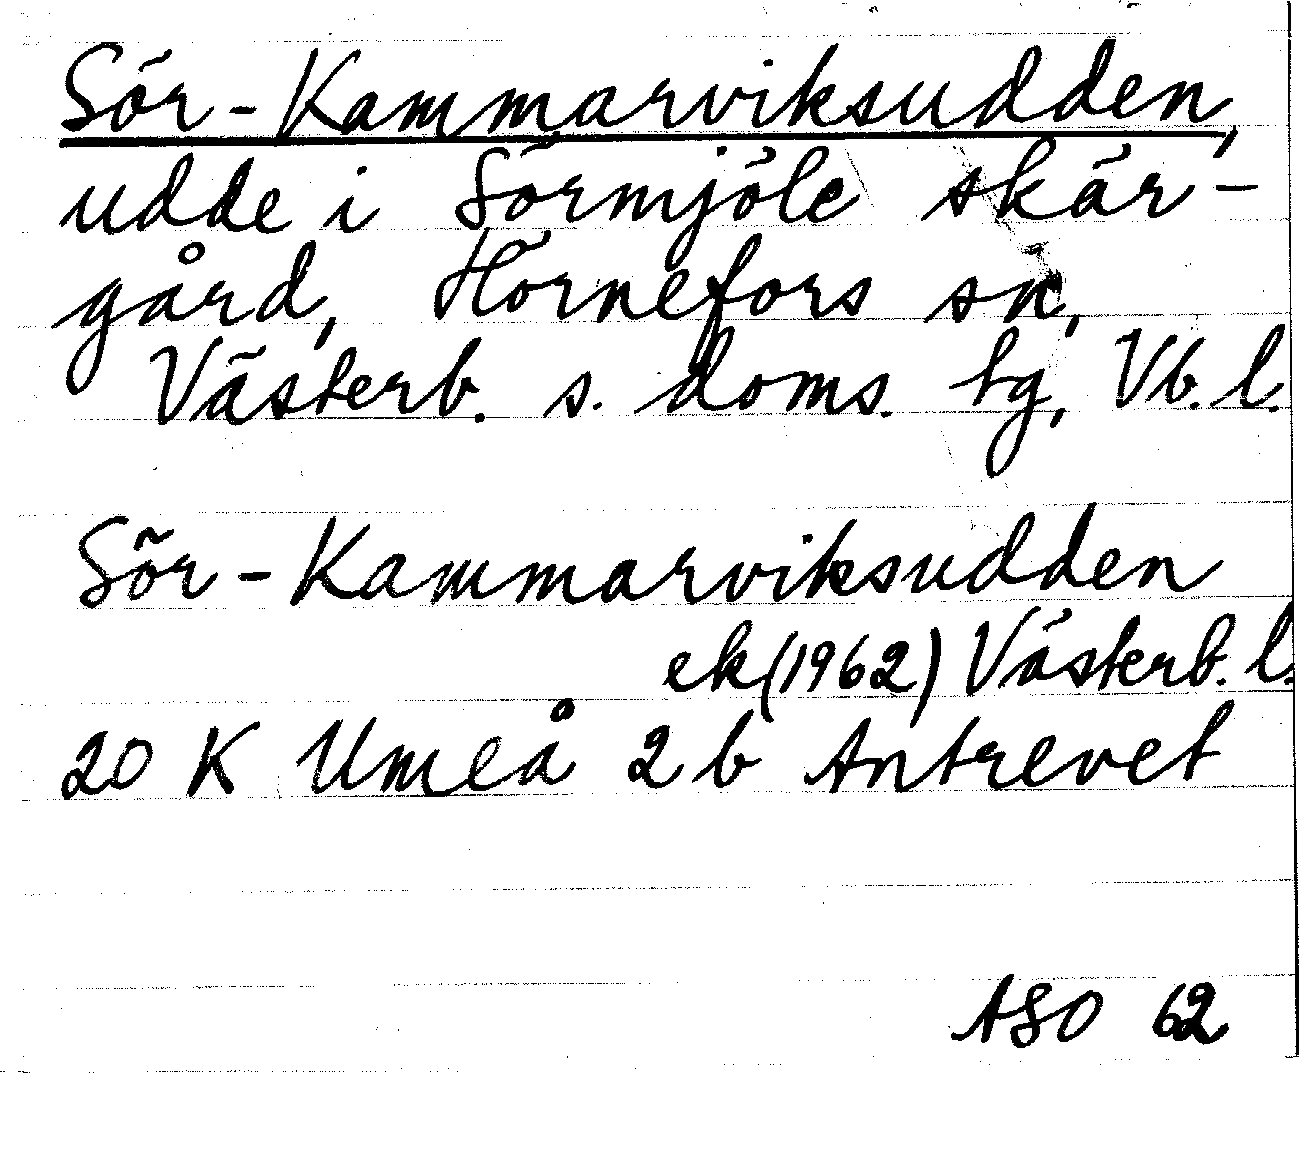 Sör-Kammarviksudden,
udde i Sörmjöle skär-
gård, Hörnefors sn,
Västerb. s. doms. tg, Vb. l.
Sör-Kammarviksudden
ek (1962) Västerb. l.
20 K Umeå 2 b Antrevet
ASO 62